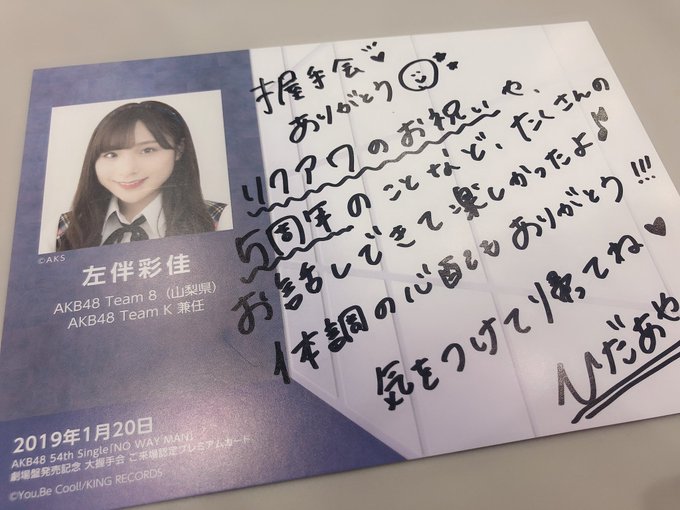 ©AKS
左伴彩佳
AKB48 Team 8（山梨県）
AKB48 Team K 兼任
2019年1月20日
AKB48 54th Single「NO WAY MAN」
劇場盤発売記念 大握手会 ご来場認定プレミアムカード
©You,Be Cool!/KING RECORDS
握手会♥
ありがとう
リクアワのお祝いや、
5周年のことなど、たくさんの
お話しできて楽しかったよ♪
体調の心配もありがとう!!!
気をつけて帰ってね♥
ひだあや